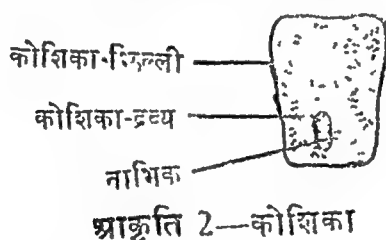 कोशिका-झिल्ली
कोशिका-द्रव्य
नाभिक
आकृति 2—कोशिका